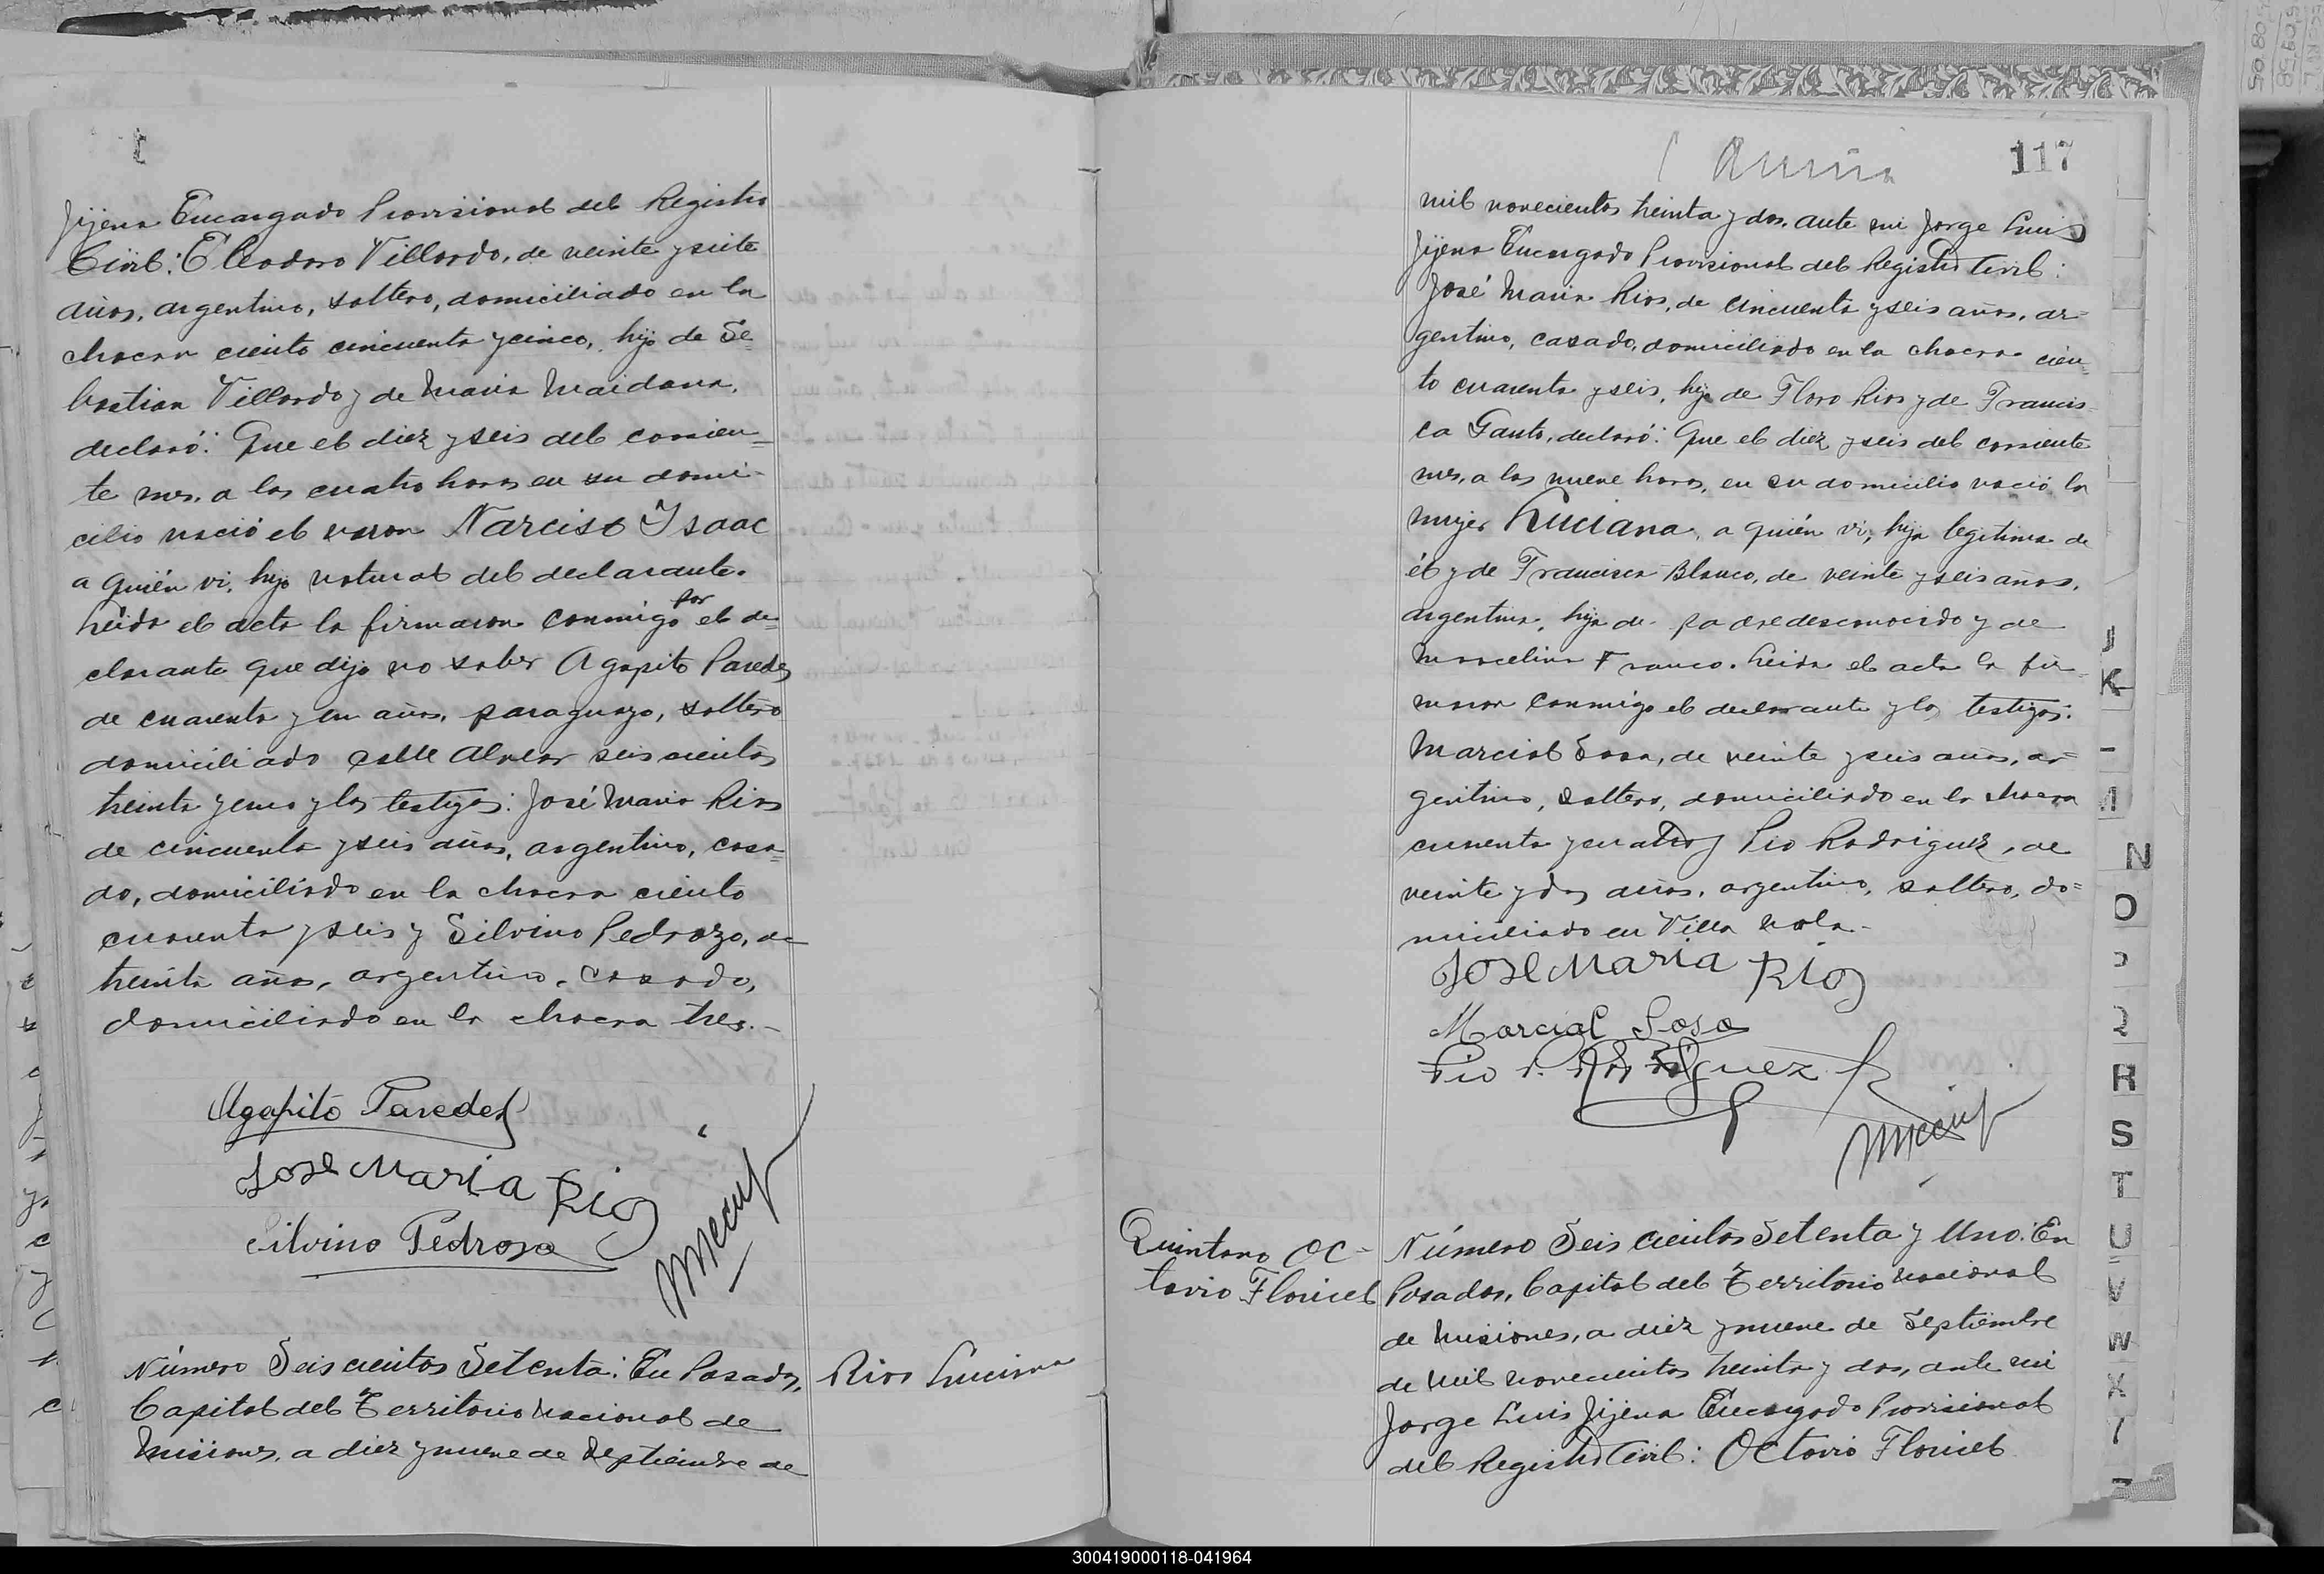 Jijena Encargado Provisional del Registro
Civil: Eleodoro Villordo, de veinte y siete
años, argentino, soltero, domiciliado en la
chacra ciento cincuenta y cinco, hijo de Se-
bastian Villordo y de Maria Maidana,
declaró: Que el diez y seis del corrien-
te mes, a las cuatro horas en su domi-
cilio nació el varon Narciso Isaac
a quién vi, hijo natural del declarante.
Leida el acta la firmaron conmigo por el de-
clarante que dijo no saber Agapito Paredes
de cuarenta y un años, paraguayo, soltero
domiciliado calle Alvear seiscientos
treinta y cinco y los testigos: José Maria Rios
de cincuenta y seis años, argentino, casa-
do, domiciliado en la chacra ciento
cuarenta y seis y Silvino Pedrozo, de
treinta años, argentino, casado,
domiciliado en la chacra tres.-
Agapito Paredes
Jose Maria Rios
Silvino Pedroso
Número Seiscientos Setenta: En Posadas,
Capital del Territorio Nacional de
Misiones, a diez y nueve de Septiembre de
Rios Luciana
117
mil novecientos treinta y dos, ante mi Jorge Luis
Jijena Encargado Provisional del Registro Civil:
José Maria Rios, de cincuenta y seis años, ar-
gentino, casado, domiciliado en la chacra cien-
to cuarenta y seis, hijo de Floro Rios y de Francis-
ca Gauto, declaró: Que el diez y seis del corriente
mes, a las nueve horas, en su domicilio nació la
mujer Luciana, a quién vi, hija legitima de
él y de Francisca Blanco, de veinte y seis años,
argentina, hija de padre desconocido y de
Marcelina Franco. Leida el acta la fir-
maron conmigo el declarante y los testigos:
Marcial Sosa, de veinte y seis años, ar-
gentino, soltero, domiciliado en la chacra
cuarenta y cuatro y Pio Rodriguez, de
veinte y dos años, argentino, soltero, do-
miciliado en Villa
Jose Maria Rios
Marcial Sosa
Pio Rodriguez
Quintana Oc-
tavio Floricel
Número Seiscientos Setenta y Uno: En
Posadas, Capital del Territorio Nacional
de Misiones, a diez y nueve de Septiembre
de mil novecientos treinta y dos, ante mi
Jorge Luis Jijena Encargado Provisional
del Registro Civil: Octavio Floricel
J
K
N
O
R
S
T
U
V
W
X
300419000118-041964